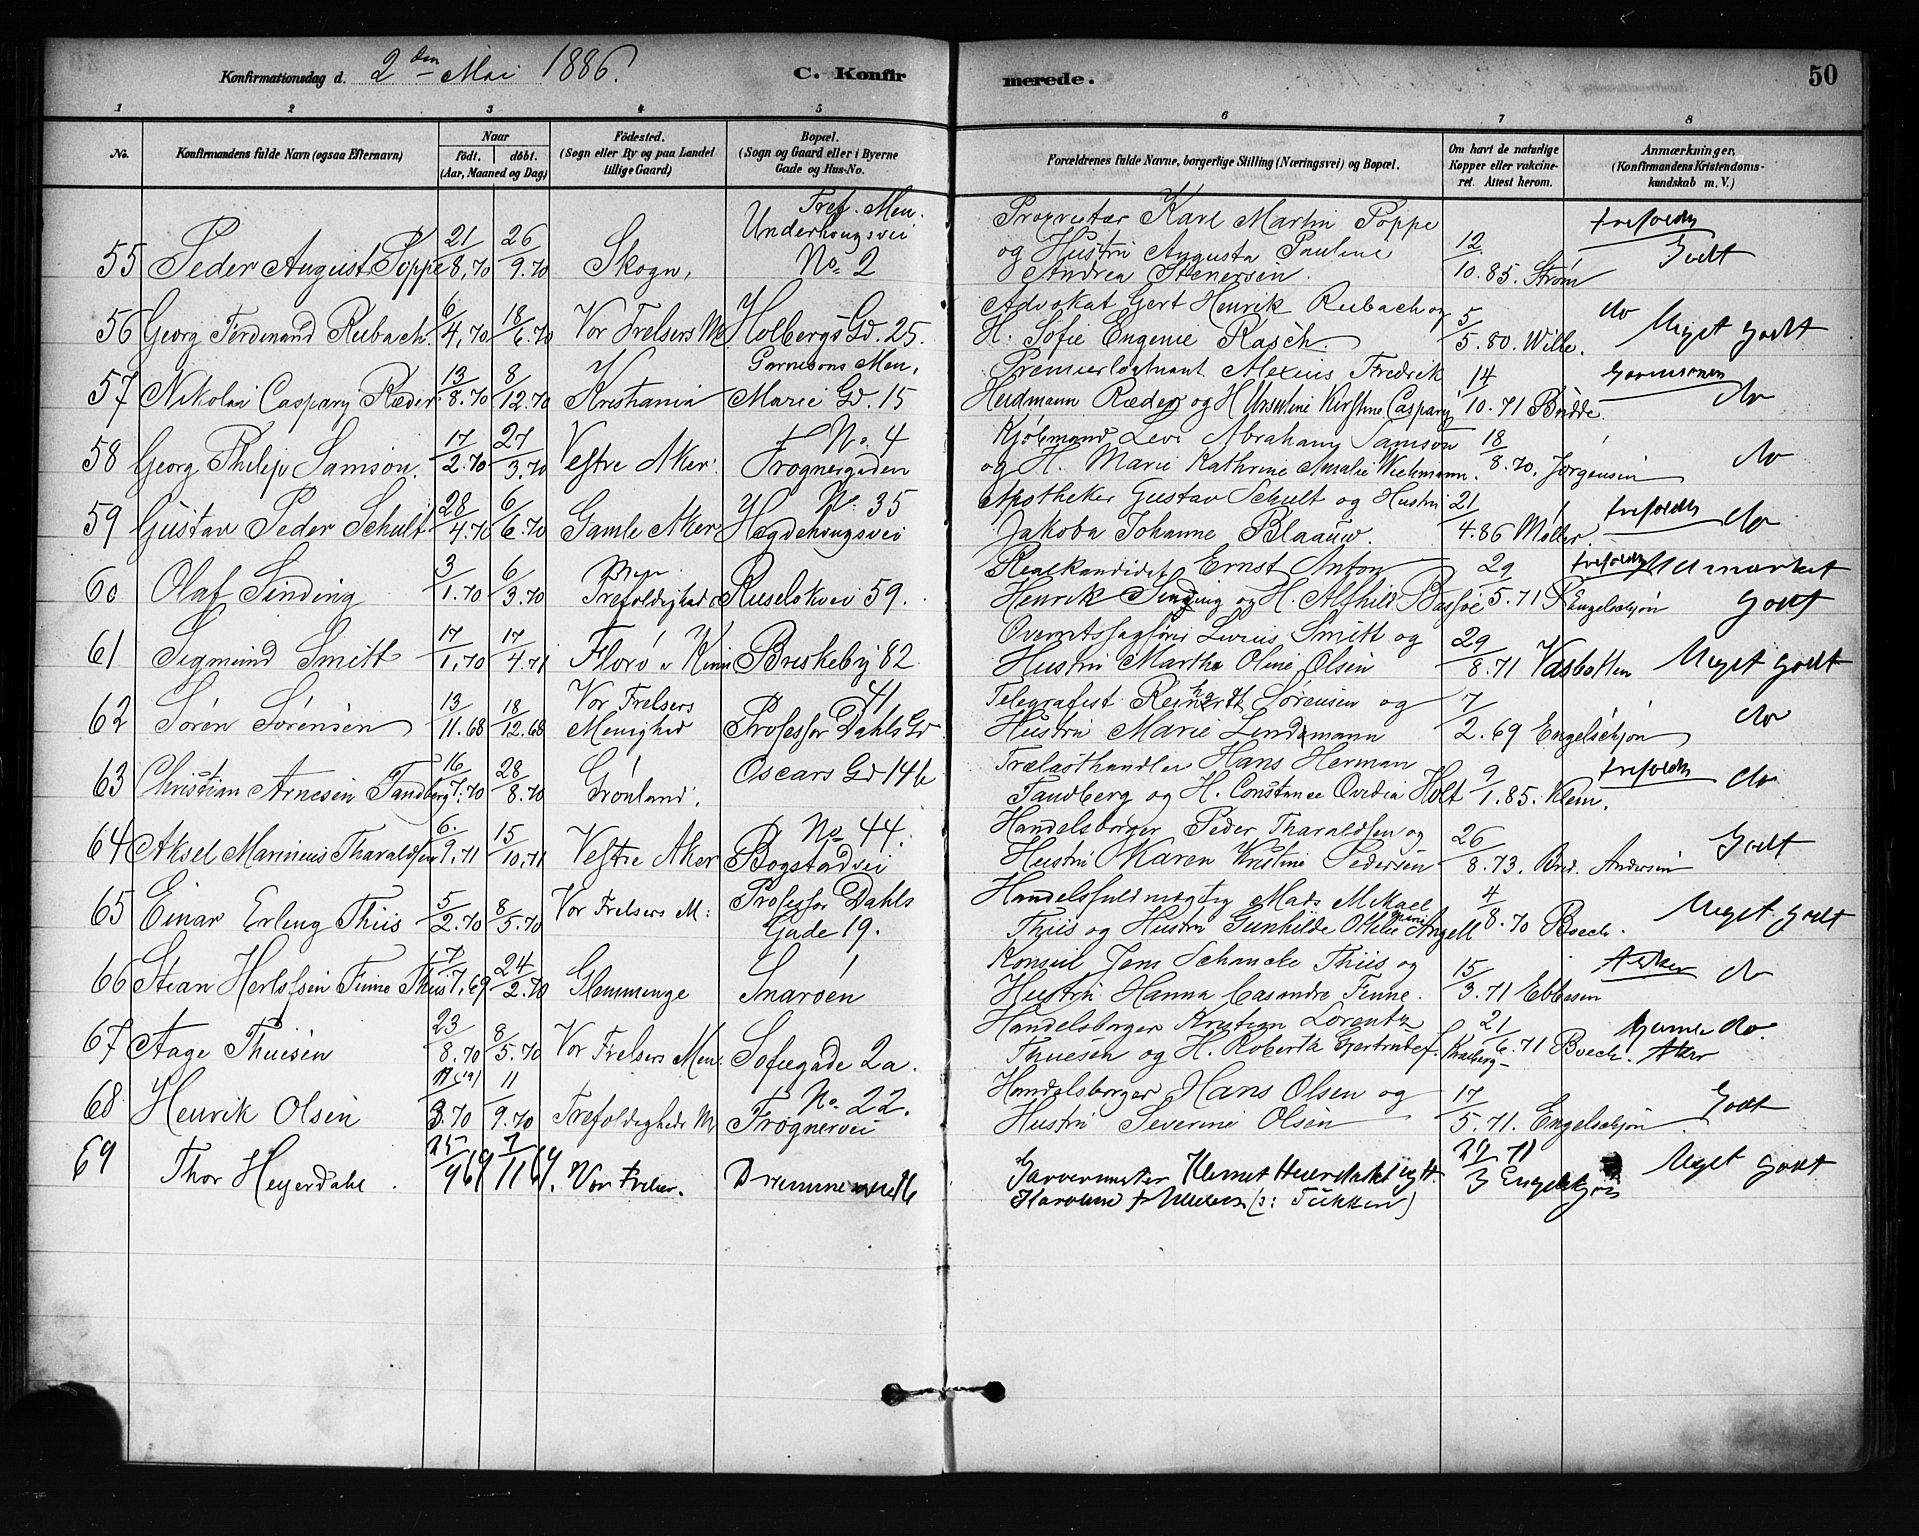 Konfirmationsdag d. 2den Mai 1886. C. Konfirmerede. 50
1 2 3 4 5 6 7 8
No. Konfirmandens fulde Navn (ogsaa Efternavn) Naar født. døbt. (Aar, Maaned og Dag) Fødested. (Sogn eller By og paa Landet tillige Gaard.) Bopæl. (Sogn og Gaard eller i Byerne Gade og Hus-No.
Forældrenes fulde Navne, borgerlige Stilling (Næringsvei) og Bopæl. Om havt de naturlige Kopper eller vakcineret. Attest herom. Anmærkninger, (Konfirmandens Kristendomskundskab m. V.)
55 Peder August Poppe 21/8.70 26/9.70 Skogn, Tref. Men. Underhougsvei No. 2
Proprietær Karl Martin Poppe og Hustru Augusta Pauline Andrea Stenersen. 12/10.85. Strøm Trefoldh Godt
56 Georg Ferdinand Rubach. 6/4,70 18/6.70 Vor Frelsers M. Holbergs Gd. 25.
Advokat Gert Henrik Rubach og H. Sofie Eugenie Rasch 5/5.80. Wille. do Meget godt
57 Nikolai Caspary Ræder 13/8.70 8/12.70 Kristiania Garnisons Men. Marie Gd. 15
Premierløitnant Alexius Fredrik Heidmann Ræder og H. Ursuline Kirstine Caspary 14/10.71 Budde. Garnisonen do
58 Georg Philip Samson. 17/2.70 27/3.70 Vestre Aker. No. 4 Frognergaden
Kjøbmand Levi Abraham Samson og H. Marie Kathrine Amalie Wichmann. 18/8.70, Jørgensen do
59 Gustav Peder Schult 28/4.70 6/6.70 Gamle Aker No. 35 Hægdehougsvei
Apotheker Gustav Schult og Hustru Jakoba Johanne Blaauw. 21/4.86 Møller. Trefoldh do
60 Olaf Sinding 3/1.70 6/3.70 Trefoldighed Ruseløkvei 59.
Realkandidat Ernst Anton Henrik Sinding og H. Alfhild Bassøe 29/5.71 P. Engelschjøn Trefoldh Udmærket godt
61 Sigmund Smitt 17/1,70 17/4.71 Florø v Kinn Briskeby 82
Overretssagfører Livius Smitt og Hustru Marthe Oline Olsen 29/8.71 Vasbotten Meget godt
62 Søren Sørensen 13/11.68 18/12.68 Vor Frelsers Menighed 41 Professor Dahls Gd
Telegrafist Reinhardt Sørensen og Hustru Marie Lindemann 7/2.69 Engelschjøn do
63 Christian Arnesen Tandberg 16/7.70 28/8.70 Grønland. Oscars Gd 14b
Trælasthandler Hans Herman Tandberg og H. Constance Ovidia Holt 9/1.85. Klem. Trefoldh do
64 Aksel Marinius Tharaldsen 6/9,71 15/10.71 Vestre Aker No 44. Bogstadvei
Handelsborger Peder Tharaldsen og Hustru Karen Kristine Pedersen 26/8.73. Andersen Godt
65 Einar Erling Thiis 5/2.70 8/5.70 Vor Frelsers M: Professor Dahls Gade 19.
Handelsfuldmægtig Mads Mikael Thiis og Hustru Gunhilde Ottilie Marie Angell 4/8.70 Boeck. Meget godt
66 Stian Herlofsen Finne Thiis 7/7,69 24/2.70 Glemminge Snarøen
Konsul Jens Schancke Thiis og Hustru Hanna Casandra Finne. 15/3.71 Ebbesen Asker do
67 Aage Thuesen 23/8.70 8/5.70 Vor Frelsers Men. Sofiegade 2a.
Handelsborger Kristian Lorentz Thuesen og H. Roberta Gjertrud f. Kraberg 21/6.71 Boeck. Gamle Aker do.
68 Henrik Olsen 17 (19)/3.70 11/9.70 Trefoldigheds M No. 22. Frognervei
Handelsborger Hans Olsen og Hustru Severine Olsen 17/5.71. Engelschjøn. Godt
69 Thor Heyerdahl. 25/9 69 7/11 69. Vor Frelser.
Garvermester og H. 29/3 71 Engelskjøn Meget godt